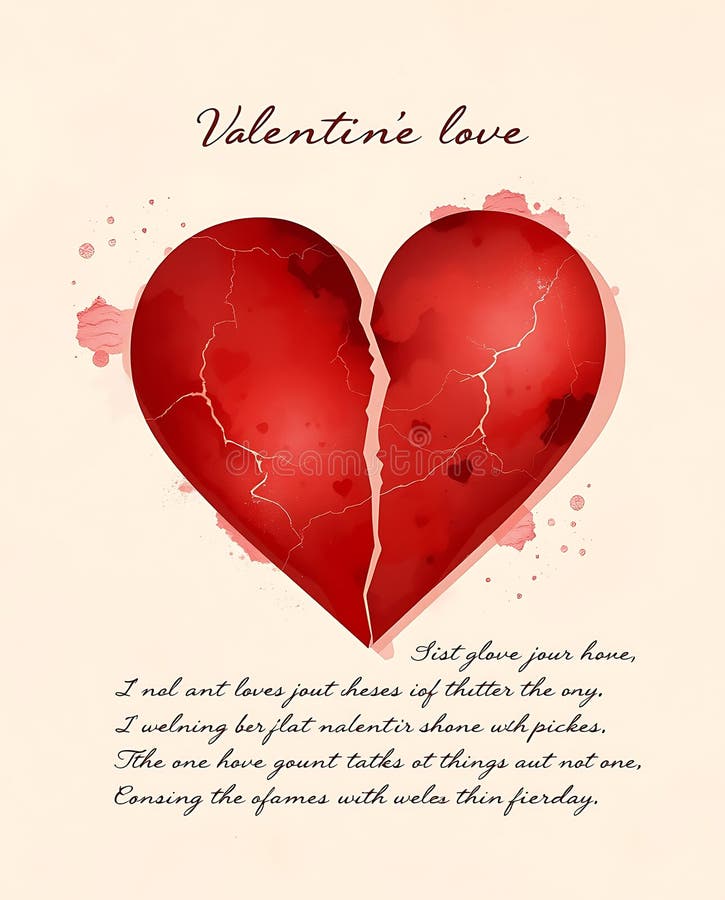 Valentin'e love
dreamstime
Sist glove jour hove,
I nol ant loves jout cheses iof thitter the ony.
I welning ber flat nalentir shone wh pickes.
Tthe one hove gount tatks ot things aut not one,
Consing the ofames with weles thin fierday.